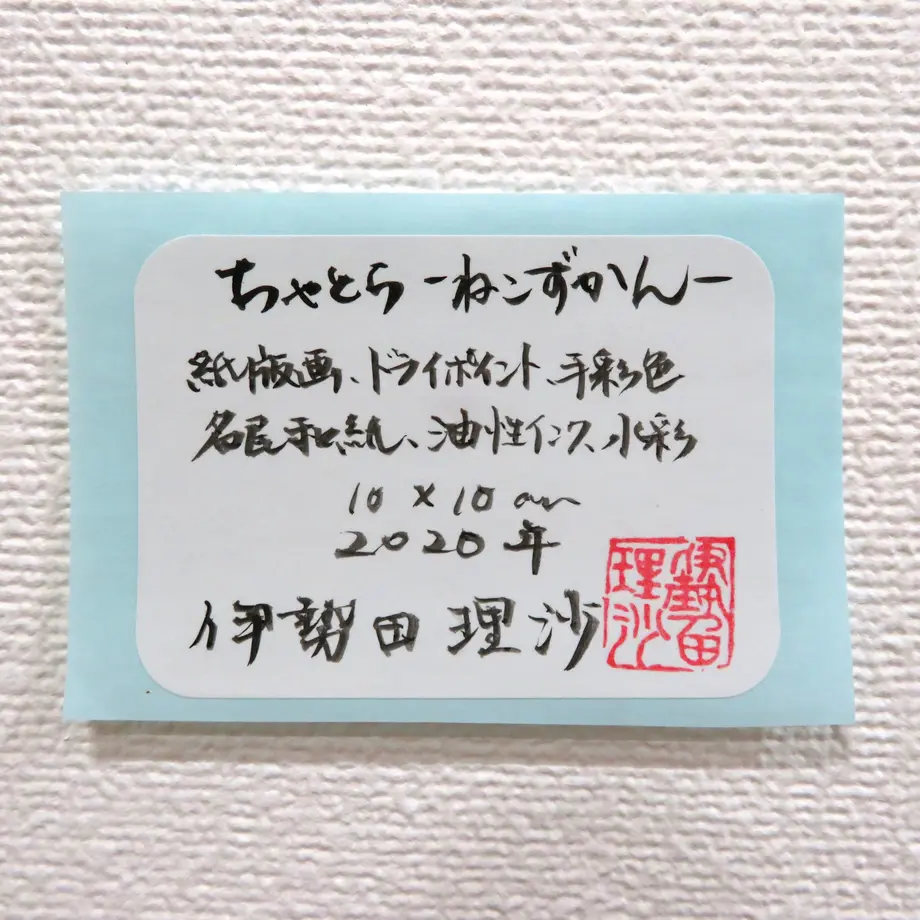 ちゃとら-ねこずかん-
紙版画、ドライポイント、手彩色
名尾和紙、油性インク、水彩
10×10cm
2020年
伊勢田理沙
伊勢田
理沙